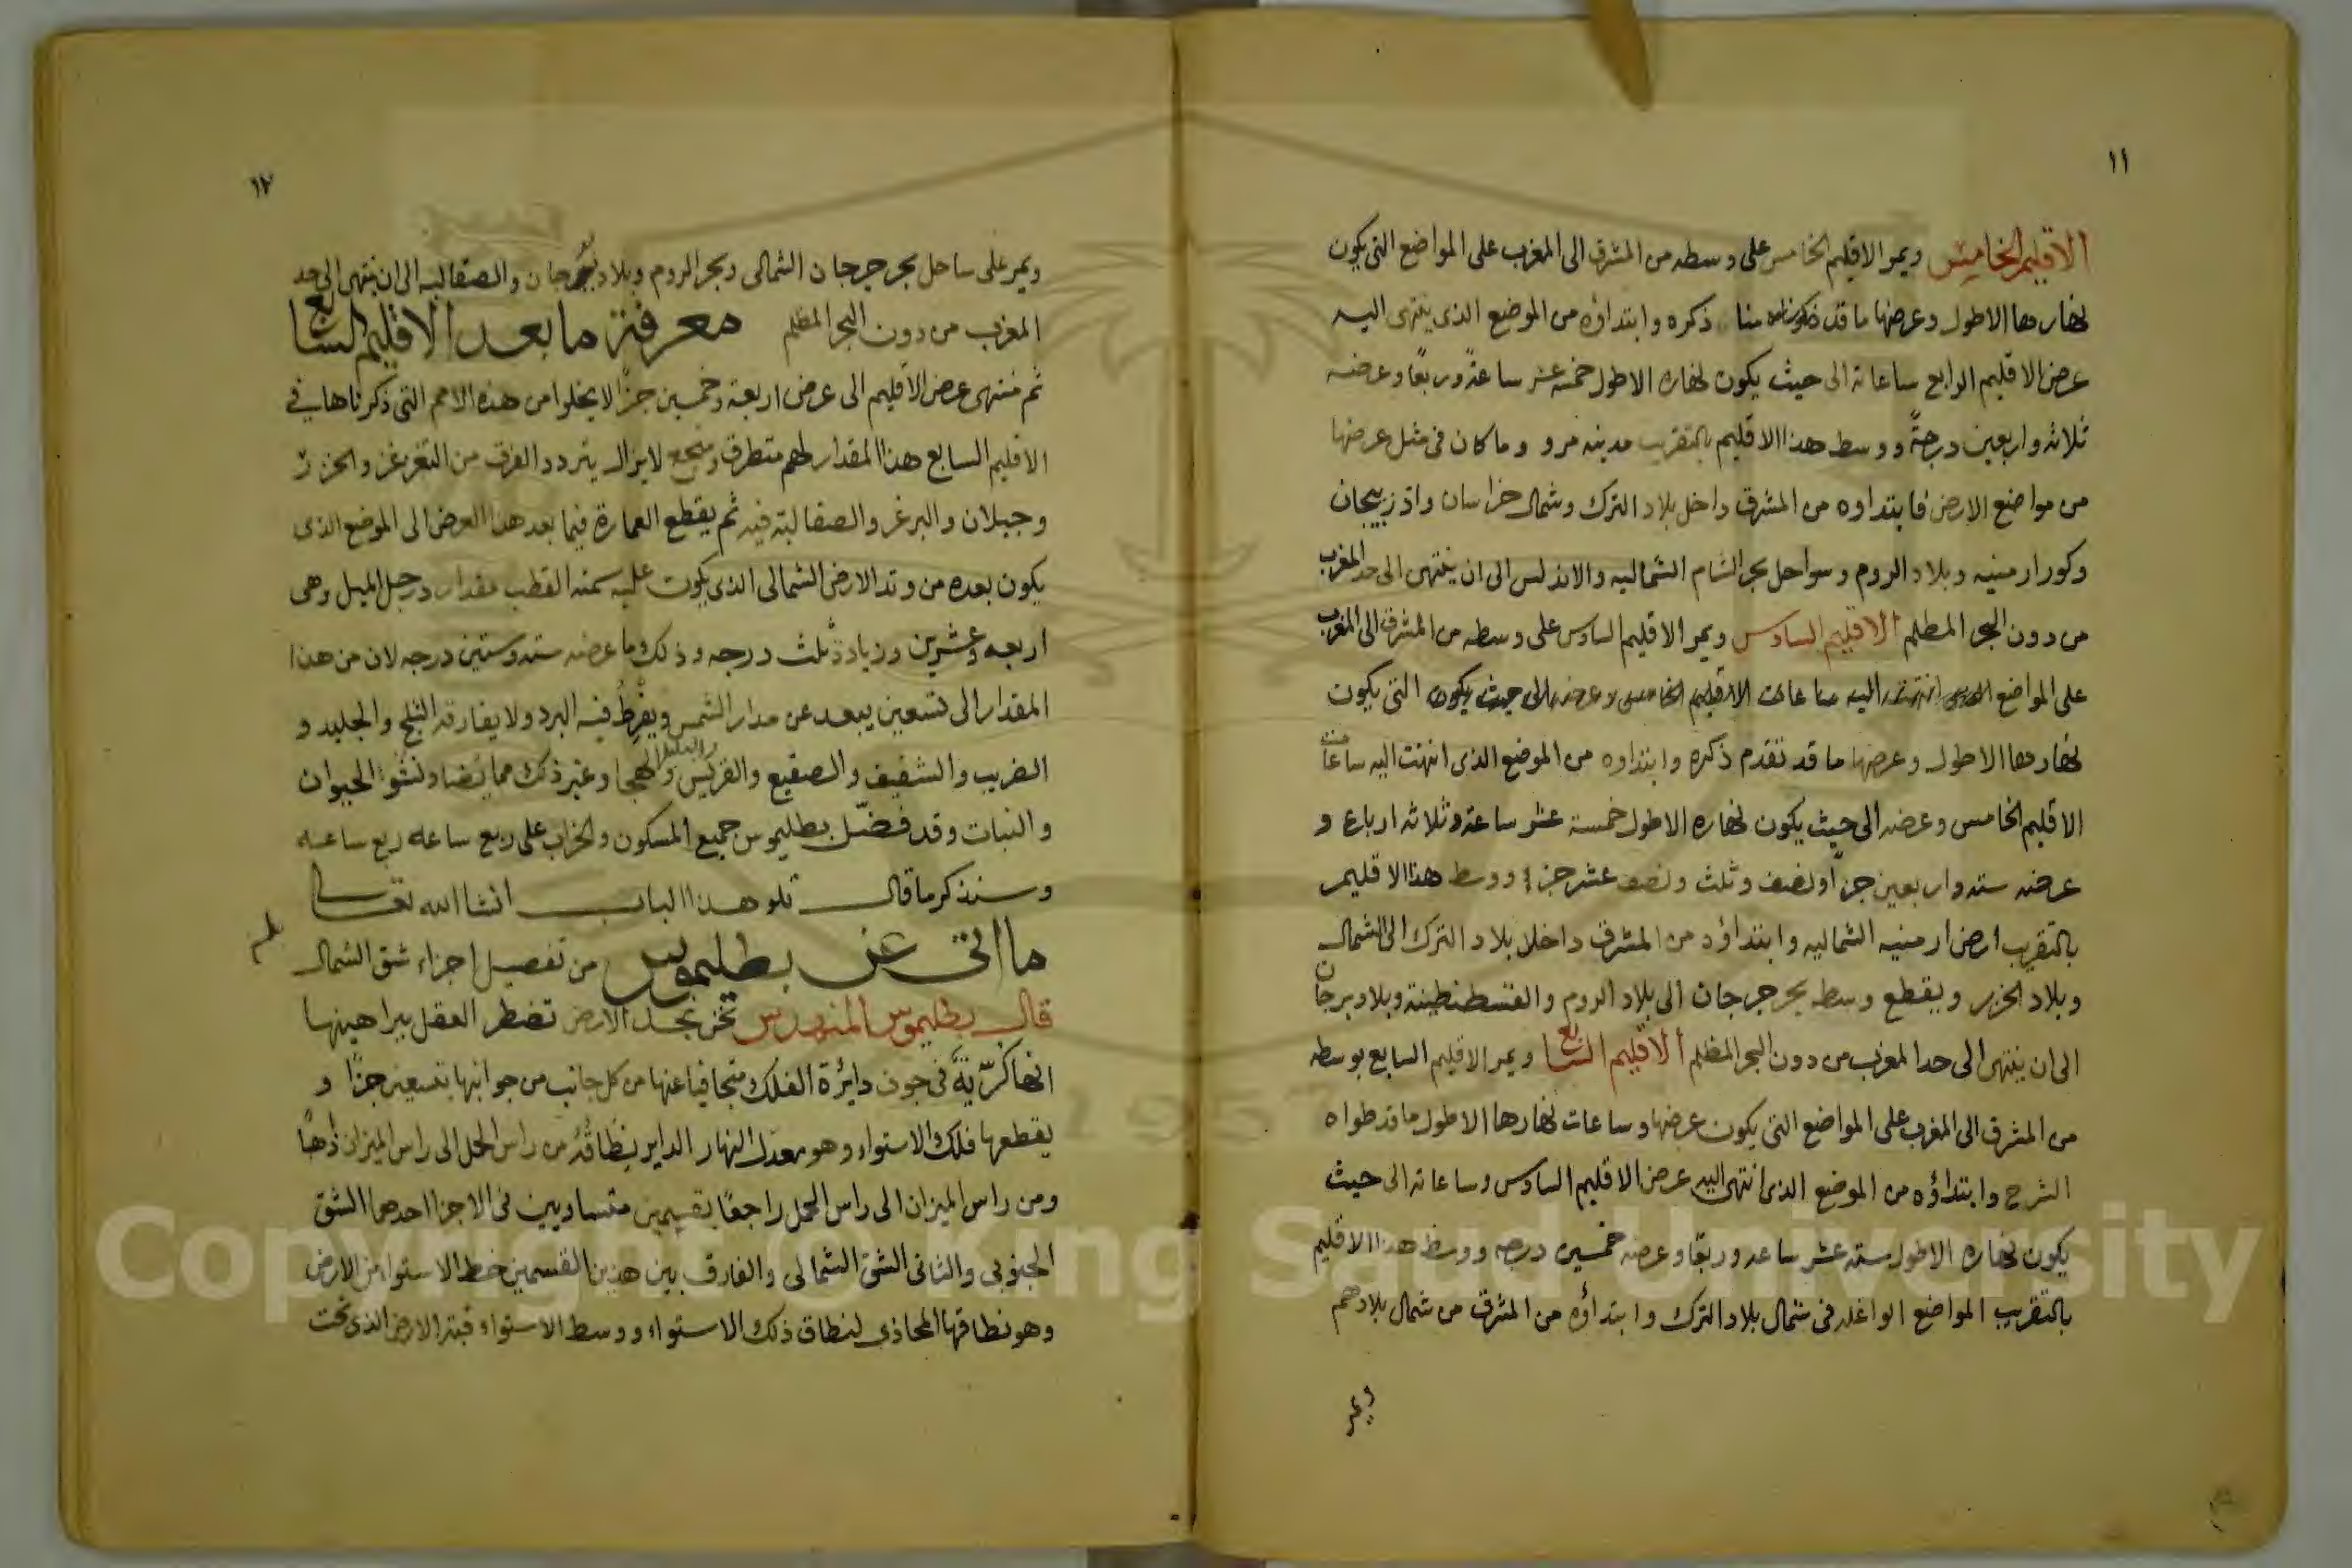 ١١
الاقليم الخامس ويمر الاقليم الخامس على وسطه من المشرق الى المغرب على المواضع التى يكون
نهارها الاطول وعرضها ما قد ذكره وابتداؤه من الموضع الذى ينتهى اليه
عرض الاقليم الرابع ساعاته الى حيث يكون نهاره الاطول خمسة عشر ساعةً وربعًا وعرضه
ثلاثه واربعين درجةً ووسط هذا الاقليم بالتقريب مدينه مرو وما كان فى مثل عرضها
من مواضع الارض فابتداوه من المشرق داخل بلاد الترك وشمال خراسان واذربيجان
وكور ارمنيه وبلاد الروم وسواحل بحر الشام الشماليه والاندلس الى ان ينتهى الى حد المغرب
من دون البحر المظلم الاقليم السادس ويمر الاقليم السادس على وسطه من المشرق الى المغرب
على المواضع اليه ساعات الاقليم الخامس وعرضه الى حيث يكون التى يكون
نهارها الاطول وعرضها ما قد تقدم ذكره وابتداوه من الموضع الذى انتهت اليه ساعات
الاقليم الخامس وعرضه الى حيث يكون نهاره الاطول خمسة عشر ساعة وثلاثه ارباع و
عرضه سته واربعين جزأ ونصف وثلث ونصف عشر جزء ووسط هذا الاقليم
بالتقريب ارض ارمنيه الشماليه وابتداؤه من المشرق داخل بلاد الترك الى الشمال
وبلاد الخزر ويقطع وسطه بحر جرجان الى بلاد الروم والقسطنطينة وبلاد برجان
الى ان ينتهى الى حد المغرب من دون البحر المظلم الاقليم السابع ويمر الاقليم السابع بوسطه
من المشرق الى المغرب على المواضع التى يكون عرضها وساعات نهارها الاطول ما قد طواه
الشرح وابتداؤه من الموضع الذى انتهى اليه عرض الاقليم السادس وساعاته الى حيث
يكون نهاره الاطول سته عشر ساعه وربعًا وعرضه خمسين درجه ووسط هذا الاقليم
بالتقريب المواضع الواغله فى شمال بلاد الترك وابتداؤه من المشرق من شمال بلادهم
ويمر
١٢
ويمر على ساحل بحر جرجان الشمالى وبحر الروم وبلاد والصقالبه الى ان ينتهى الى حد
المغرب من دون البحر المظلم معرفة ما بعد الاقليم السابع
ثم منتهى عرض الاقليم الى عرض اربعة وخمسين جزأ لا يخلوا من هذه الامم التى ذكرناها فى
الاقليم السابع هذا المقدار لهم متطرف لا يزال يتردد الفرق من التغزغز والخزر
وجيلان والبرغر والصقالبة فيه ثم يقطع العمارة فيما بعد هذا العرض الى الموضع الذى
يكون بعده من وتد الارض الشمالى الذى يكون عليه سمته القطب مقدار درجل الميل وهى
اربعه وعشرين وزيادة ثلث درجه وذلك ما عرضه سته وستين درجه لان من هذا
المقدار الى تسعين يبعد عن مدار الشمس ويفرط فيه البرد ولا يفارقه الثلج والجليد و
الضريب والشفيف والصقيع والقريس وغير ذلك مما يضاد لنشو الحيوان
والنبات وقد فضّل بطليموس جميع المسكون والخراب على ربع ساعه ربع ساعه
وسنذكر ما قال تلو هذا الباب انشا الله تعالى
ما اتى عن بطليموس من تفصيل اجزاء شق الشمال
قال بطليموس المهندس نحن نجد الارض تضطر العقل ببراهينها
انها كرّيةً فى جوف دايرة الفلك متجافيا عنها من كل جانب من جوانبها بتسعين جزأ و
يقطعها فلك الاستواء وهو معدل النهار الداير بنطاقه من راس الحمل الى راس الميزان
ومن راس الميزان الى راس الحمل راجعًا بقسمين متساويين فى الاجزا احدهما الشق
الجنوبى والثانى الشق الشمالى والفارق بين هذين القسمين خط الاستوا من الارض
وهو نطاقها المحاذى لنطاق ذلك الاستواء ووسط الاستواء قبة الارض الذى تحت